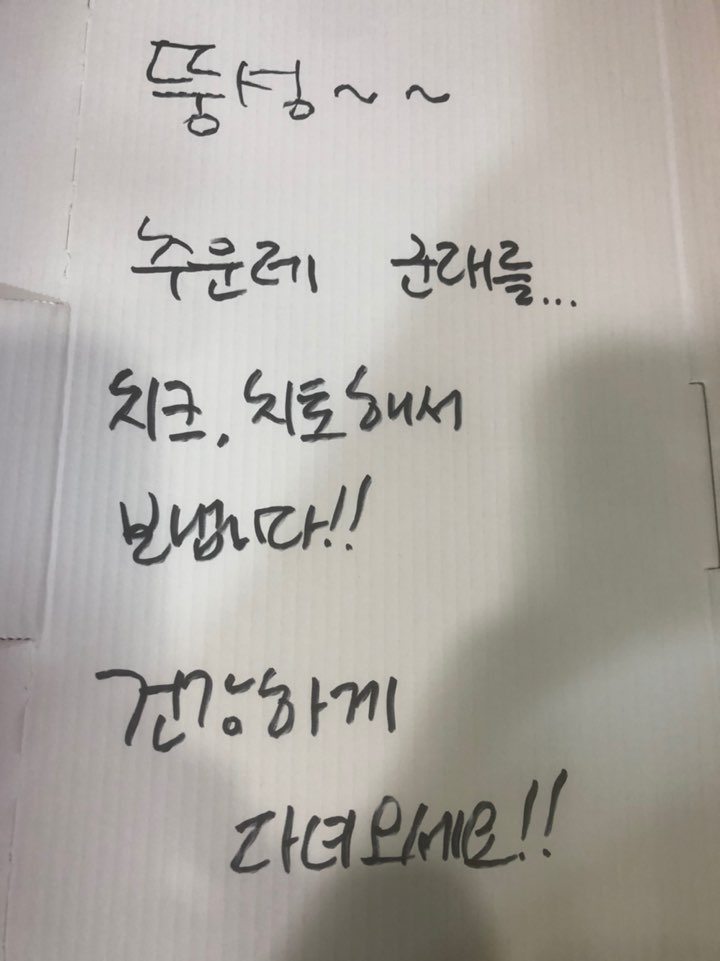 뚱성~~
추운데 군대를...
치크, 치토해서
보냅니다!!
건강하게
다녀오세요!!